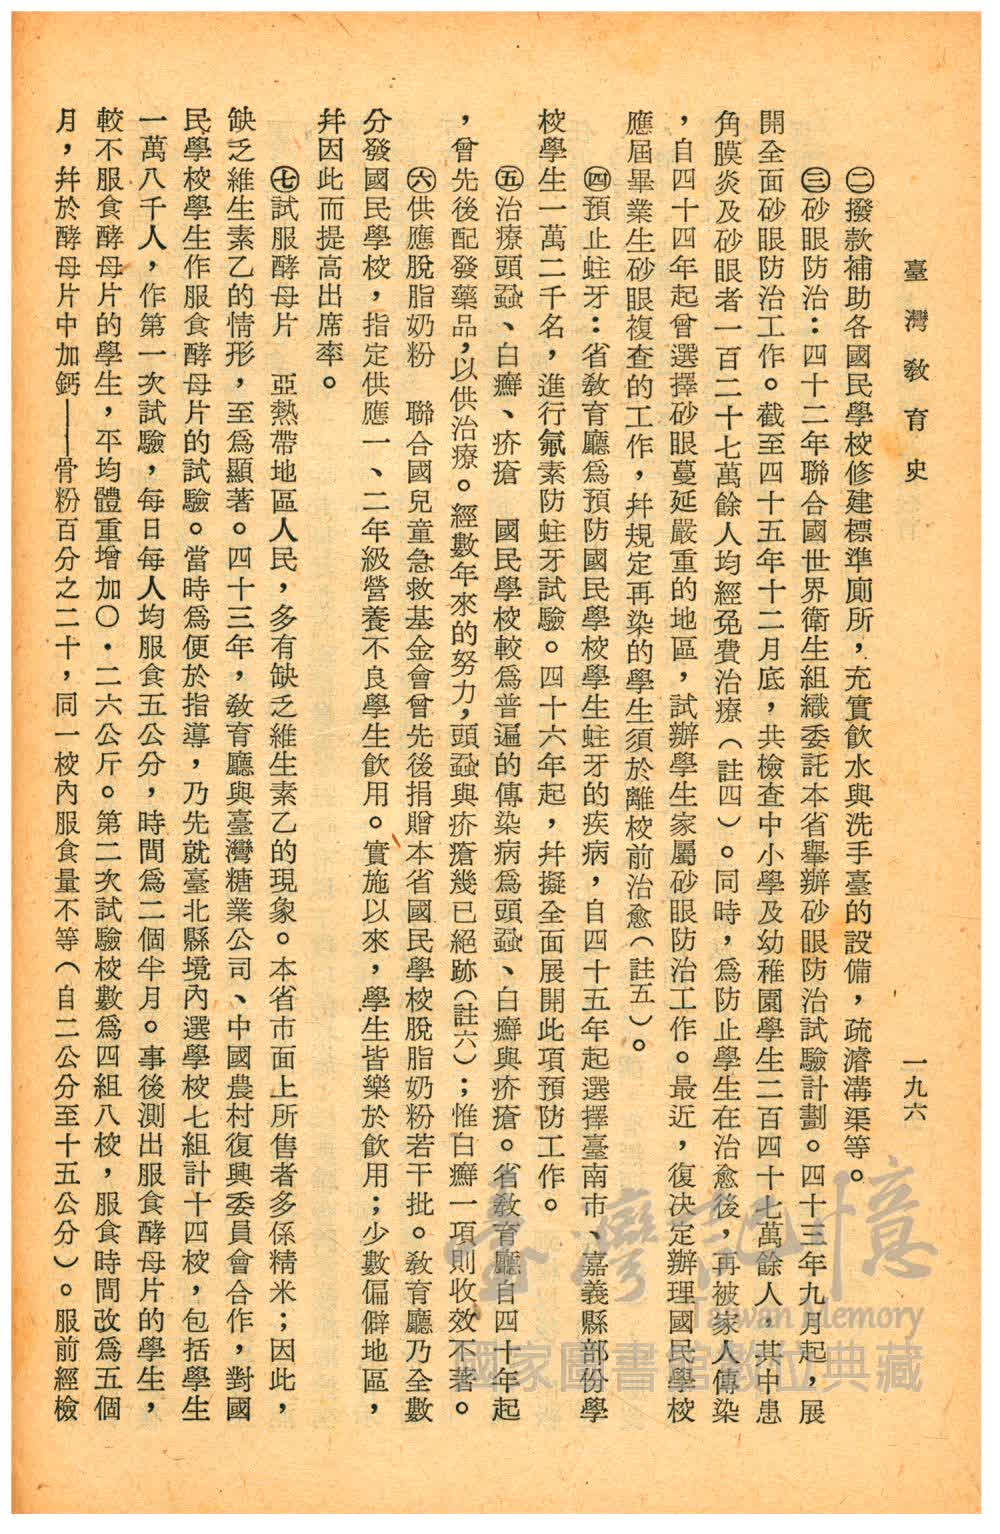 臺灣教育史
一九六
㊁撥款補助各國民學校修建標準廁所，充實飲水與洗手臺的設備，疏濬溝渠等。
㊂砂眼防治：四十二年聯合國世界衛生組織委託本省舉辦砂眼防治試驗計劃。四十三年九月起，展
開全面砂眼防治工作。截至四十五年十二月底，共檢查中小學及幼稚園學生二百四十七萬餘人，其中患
角膜炎及砂眼者一百二十七萬餘人均經免費治療（註四）。同時，爲防止學生在治愈後，再被家人傳染
，自四十四年起曾選擇砂眼蔓延嚴重的地區，試辦學生家屬砂眼防治工作。最近，復決定辦理國民學校
應屆畢業生砂眼複查的工作，幷規定再染的學生須於離校前治愈（註五）。
㊃預止蛀牙：省教育廳爲預防國民學校學生蛀牙的疾病，自四十五年起選擇臺南市、嘉義縣部份學
校學生一萬二千名，進行氟素防蛀牙試驗。四十六年起，幷擬全面展開此項預防工作。
㊄治療頭蝨、白癬、疥瘡　國民學校較爲普遍的傳染病爲頭蝨、白癬與疥瘡。省教育廳自四十年起
，曾先後配發藥品，以供治療。經數年來的努力，頭蝨與疥瘡幾已絕跡（註六）；惟白癬一項則收效不著。
㊅供應脫脂奶粉　聯合國兒童急救基金會曾先後捐贈本省國民學校脫脂奶粉若干批。教育廳乃全數
分發國民學校，指定供應一、二年級營養不良學生飲用。實施以來，學生皆樂於飲用；少數偏僻地區，
幷因此而提高出席率。
㊆試服酵母片　亞熱帶地區人民，多有缺乏維生素乙的現象。本省市面上所售者多係精米；因此，
缺乏維生素乙的情形，至爲顯著。四十三年，教育廳與臺灣糖業公司、中國農村復興委員會合作，對國
民學校學生作服食酵母片的試驗。當時爲便於指導，乃先就臺北縣境內選學校七組計十四校，包括學生
一萬八千人，作第一次試驗，每日每人均服食五公分，時間爲二個半月。事後測出服食酵母片的學生，
較不服食酵母片的學生，平均體重增加〇・二六公斤。第二次試驗校數爲四組八校，服食時間改爲五個
月，幷於酵母片中加鈣——骨粉百分之二十，同一校內服食量不等（自二公分至十五公分）。服前經檢
臺灣記憶
Taiwan Memory
國家圖書館數位典藏